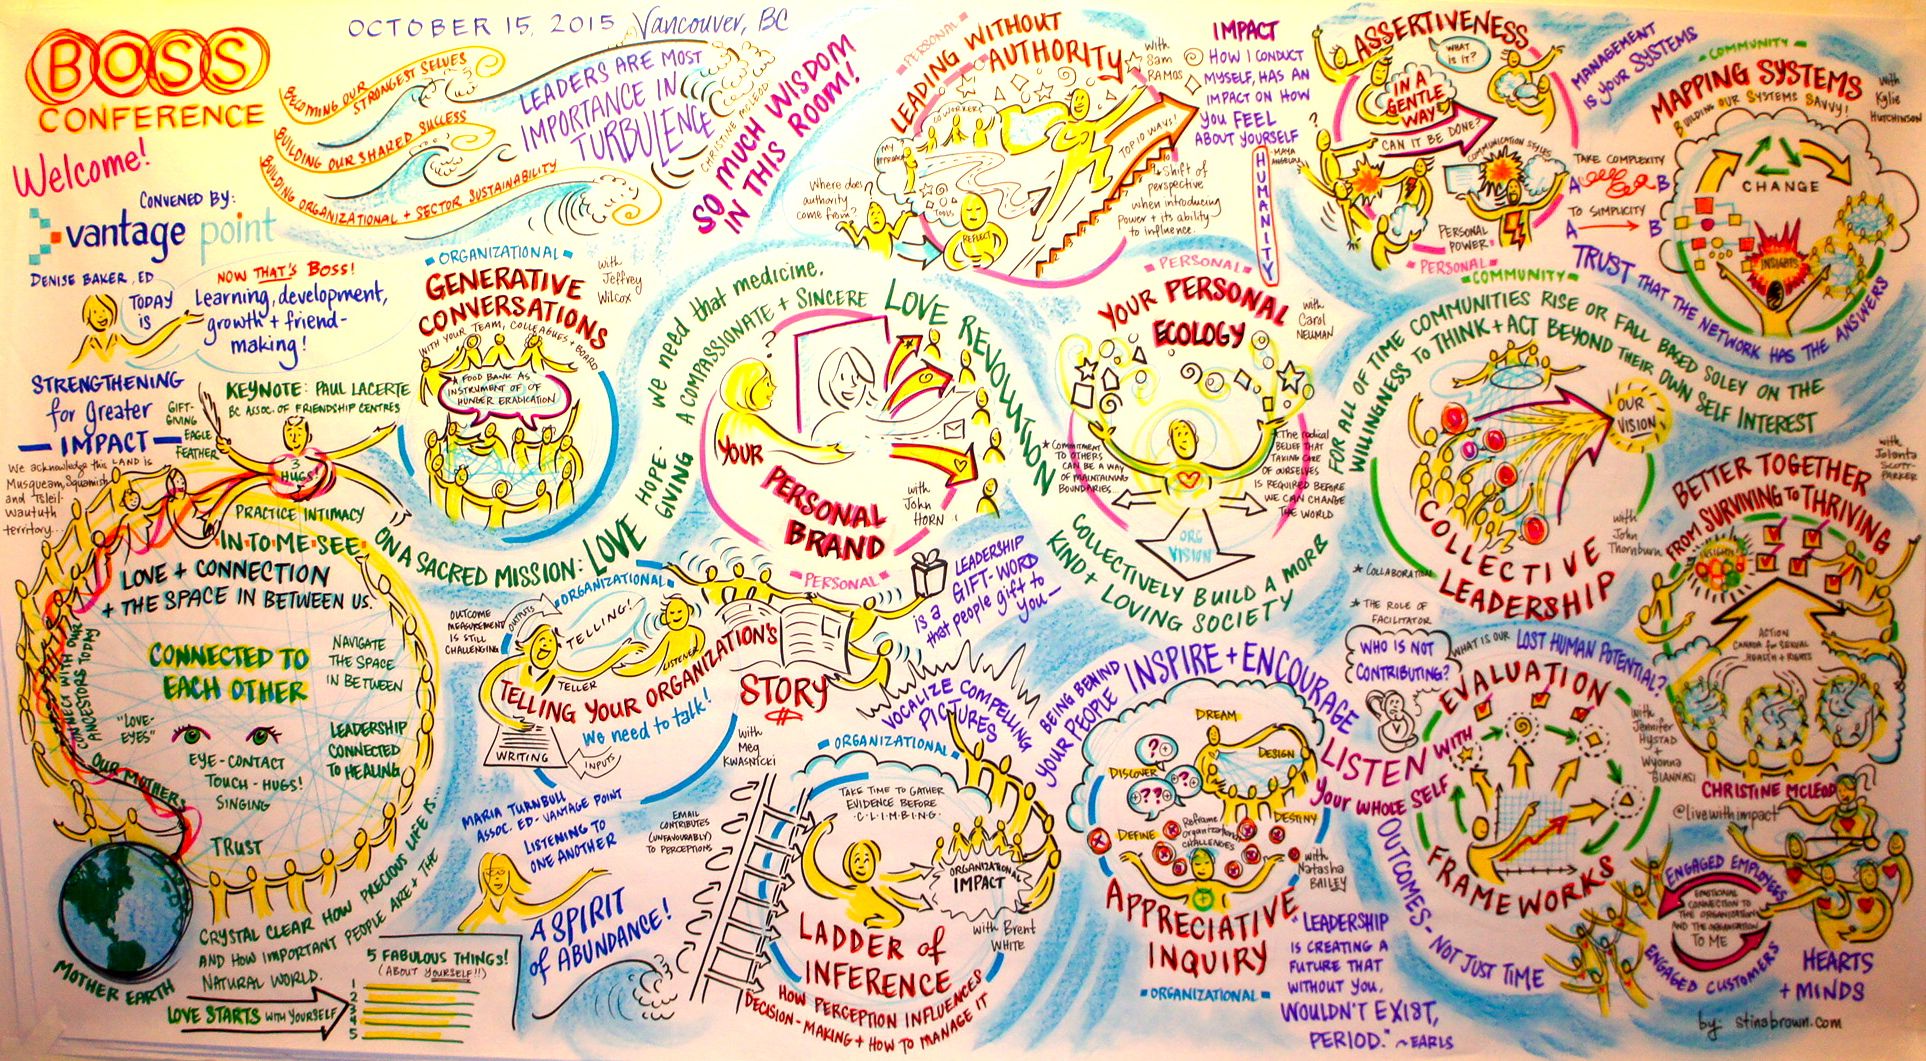 BOSS
CONFERENCE
OCTOBER 15, 2015 Vancouver, BC
Welcome!
CONVENED BY:
vantage point
BECOMING OUR STRONGEST SELVES
BUILDING OUR SHARED SUCCESS
BUILDING ORGANIZATIONAL + SECTOR SUSTAINABILITY
LEADERS ARE MOST
IMPORTANCE IN
TURBULENCE
CHRISTINE MCLEOD
SO MUCH WISDOM
IN THIS ROOM!
DENISE BAKER, ED
TODAY
IS
NOW THAT'S BOSS!
Learning, development,
growth + friend-
making!
STRENGTHENING
for Greater
IMPACT
We acknowledge this LAND is
Musqueam, Squamish
and Tsleil-
Waututh
territory...
KEYNOTE: PAUL LACERTE
BC ASSOC. OF FRIENDSHIP CENTRES
GIFT-
GIVING
EAGLE
FEATHER
3
HUGS!
PRACTICE INTIMACY
IN·TO·ME·SEE
LOVE + CONNECTION
+ THE SPACE IN BETWEEN US.
CONNECTED TO
EACH OTHER
NAVIGATE
THE SPACE
IN BETWEEN
"LOVE-
EYES"
EYE-CONTACT
TOUCH - HUGS!
SINGING
LEADERSHIP
CONNECTED
TO HEALING
TRUST
CONNECT WITH OUR
ANCESTORS TODAY
OUR MOTHERS
MOTHER EARTH
CRYSTAL CLEAR HOW PRECIOUS LIFE IS...
AND HOW IMPORTANT PEOPLE ARE + THE
NATURAL WORLD.
LOVE STARTS WITH YOURSELF
5 FABULOUS THINGS!
(ABOUT YOURSELF!!)
1
2
3
4
5
ON A SACRED MISSION: LOVE
HOPE-GIVING
we need that medicine.
A COMPASSIONATE + SINCERE LOVE REVOLUTION
COLLECTIVELY BUILD A MORE
KIND + LOVING SOCIETY
ORGANIZATIONAL
GENERATIVE
CONVERSATIONS
WITH YOUR TEAM, COLLEAGUES + BOARD
with
Jeffrey
Wilcox
A FOOD BANK AS
INSTRUMENT OF OF
HUNGER ERADICATION
YOUR
PERSONAL
BRAND
with
John
HORN
PERSONAL
PERSONAL
LEADING WITHOUT
AUTHORITY
with
Sam
RAMOS
COWORKERS
MY APPROACH
TOOLS
REFLECT
TOP 10 WAYS!
Where does
authority
come from?
Shift of
perspective
when introducing
Power + its ability
to influence.
IMPACT
HOW I CONDUCT
MYSELF, HAS AN
IMPACT ON HOW
YOU FEEL
ABOUT YOURSELF
- MAYA ANGELOU
HUMANITY
PERSONAL
YOUR PERSONAL
ECOLOGY
with
Carol
NEUMAN
* COMMITMENT
TO OTHERS
CAN BE A WAY
OF MAINTAINING
BOUNDARIES...
* The radical
BELIEF THAT
TAKING CARE
OF OURSELVES
IS REQUIRED BEFORE
WE CAN CHANGE
THE WORLD
ORG
VISION
ASSERTIVENESS
WHAT
IS IT?
IN A
GENTLE
WAY
CAN IT BE DONE?
COMMUNICATION STYLES
PERSONAL
POWER
PERSONAL
MANAGEMENT
IS YOUR SYSTEMS
TAKE COMPLEXITY
A B
TO SIMPLICITY
A B
COMMUNITY
MAPPING SYSTEMS
BUILDING OUR SYSTEMS SAVVY!
with
Kylie
HUTCHINSON
CHANGE
INSIGHTS
TRUST THAT THE NETWORK HAS THE ANSWERS
COMMUNITY
FOR ALL OF TIME COMMUNITIES RISE OR FALL BASED SOLEY ON THE
WILLINGNESS TO THINK + ACT BEYOND THEIR OWN SELF INTEREST
OUR
VISION
COLLECTIVE
LEADERSHIP
with
John
Thornburn
* COLLABORATION
* THE ROLE OF
FACILITATOR
BETTER TOGETHER
FROM SURVIVING TO THRIVING
with
Jolanta
SCOTT-
PARKER
INSIGHTS!
ACTION
CANADA for SEXUAL
HEALTH + RIGHTS
ORGANIZATIONAL
TELLING YOUR ORGANIZATION'S
STORY
OUTCOME
MEASUREMENT
IS STILL
CHALLENGING
OUTPUTS
TELLING!
TELLER
LISTENER
WRITING
INPUTS
We need to talk!
with
Meg
KWASNICKI
LEADERSHIP
is a GIFT-WORD
that people gift to
YOU-
VOCALIZE COMPELLING
PICTURES
MARIA TURNBULL
ASSOC. ED - VANTAGE POINT
LISTENING TO
ONE ANOTHER
A SPIRIT
of ABUNDANCE!
EMAIL
CONTRIBUTES
(UNFAVOURABLY)
TO PERCEPTIONS
ORGANIZATIONAL
TAKE TIME TO GATHER
EVIDENCE BEFORE
·C·L·I·M·B·I·N·G·
ORGANIZATIONAL
IMPACT
LADDER of
INFERENCE
with Brent
WHITE
HOW PERCEPTION INFLUENCES
DECISION-MAKING + HOW TO MANAGE IT
BEING BEHIND
YOUR PEOPLE
INSPIRE + ENCOURAGE
LISTEN WITH
YOUR WHOLE SELF
DREAM
DESIGN
DISCOVER
DEFINE
DESTINY
Reframe
organizational
CHALLENGES
APPRECIATIVE
INQUIRY
ORGANIZATIONAL
with
Natasha
BAILEY
"LEADERSHIP
IS CREATING A
FUTURE THAT
WITHOUT YOU,
WOULDN'T EXIST,
PERIOD." ~EARLS
WHO IS NOT
CONTRIBUTING?
WHAT IS OUR LOST HUMAN POTENTIAL?
EVALUATION
FRAMEWORKS
with
Jennifer
HYSTAD
+
Wyonna
OUTCOMES - NOT JUST TIME
CHRISTINE MCLEOD
@livewithimpact
ENGAGED EMPLOYEES
EMOTIONAL
CONNECTION TO
THE ORGANIZATION
AND THE ORGANIZATION
TO ME
ENGAGED CUSTOMERS
HEARTS
+ MINDS
by: stinabrown.com